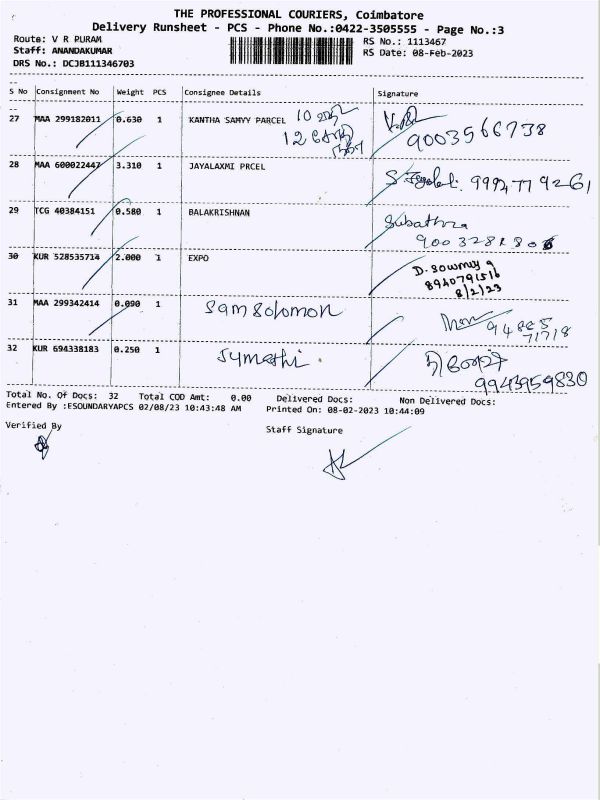 THE PROFESSIONAL COURIERS, Coimbatore
Delivery Runsheet - PCS - Phone No.:0422-3505555 - Page No.:3
Route: V R PURAM
RS No.: 1113467
Staff: ANANDAKUMAR
RS Date: 08-Feb-2023
DRS No.: DCJB111346703
S No Consignment No Weight PCS Consignee Details Signature
27 MAA 299182011 0.630 1 KANTHA SAMVY PARCEL 10
12
9003566738
28 MAA 600022447 3.310 1 JAYALAXMI PRCEL
29 TCG 40384151 0.580 1 BALAKRISHNAN Subathra
30 KUR 528535714 2.000 1 EXPO D. Sowmiya
8940791516
8/2/23
31 MAA 299342414 0.090 1 Sam Solomon
32 KUR 694338183 0.250 1 Sumathi
9943959830
Total No. Of Docs: 32 Total COD Amt: 0.00 Delivered Docs: Non Delivered Docs:
Entered By :ESOUNDARYAPCS 02/08/23 10:43:48 AM Printed On: 08-02-2023 10:44:09
Verified By
Staff Signature